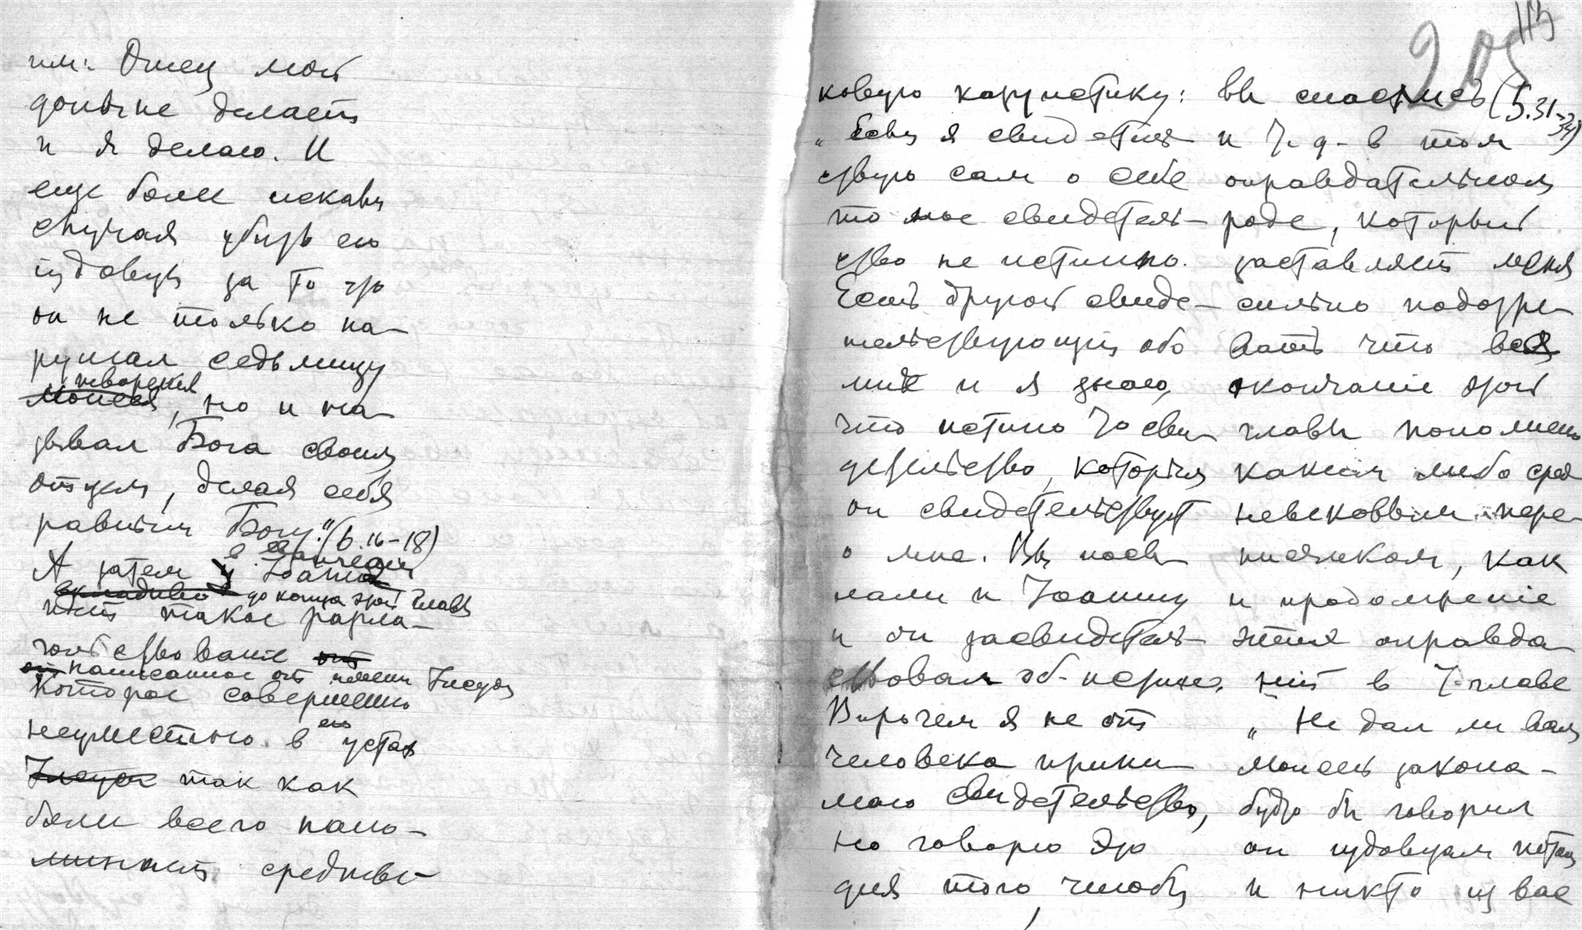 им: Отец мой
доныне делает
и я делаю. И
еще более искали
случая убить его
иудовцы за то что
он не только на-
рушал седьмицу
творения
Моисея, но и на-
зывал Бога своим
отцем, делая себя
равным Богу." (6.16-18)
А затем у Иоанна
до конца этой главы
идет такое разгла-
гольствование от
написанное от имени Иисуса
которое совершенно
неуместно в его устах
Иисуса так как
более всего напо-
минает средневе-
205
113
ковую казуистику:
"Если я свидетель-
ствую сам о себе
то мое свидетель-
ство не истинно.
Есть другой свиде-
тельствующий обо
мне и я знаю,
что истино то сви-
детельство, которым
он свидетельствует
о мне. Вы посы-
лали к Иоанну
и он засвидетель-
ствовал об истине.
Впрочем я не от
человека прини-
маю свидетельство,
но говорю это
для того, чтобы
вы спаслись (5.31-34)
и т. д. в том
оправдательном
роде, который
заставляет меня
сильно подозре-
вать что вся
окончание этой
главы пополнено
каким либо сред-
невековым пере-
писчиком, как
и продолжение
этой оправда-
ний в 7 главе
"Не дал ли вам
Моисей закона-
будто бы говорил
он иудовцам
и никто из вас